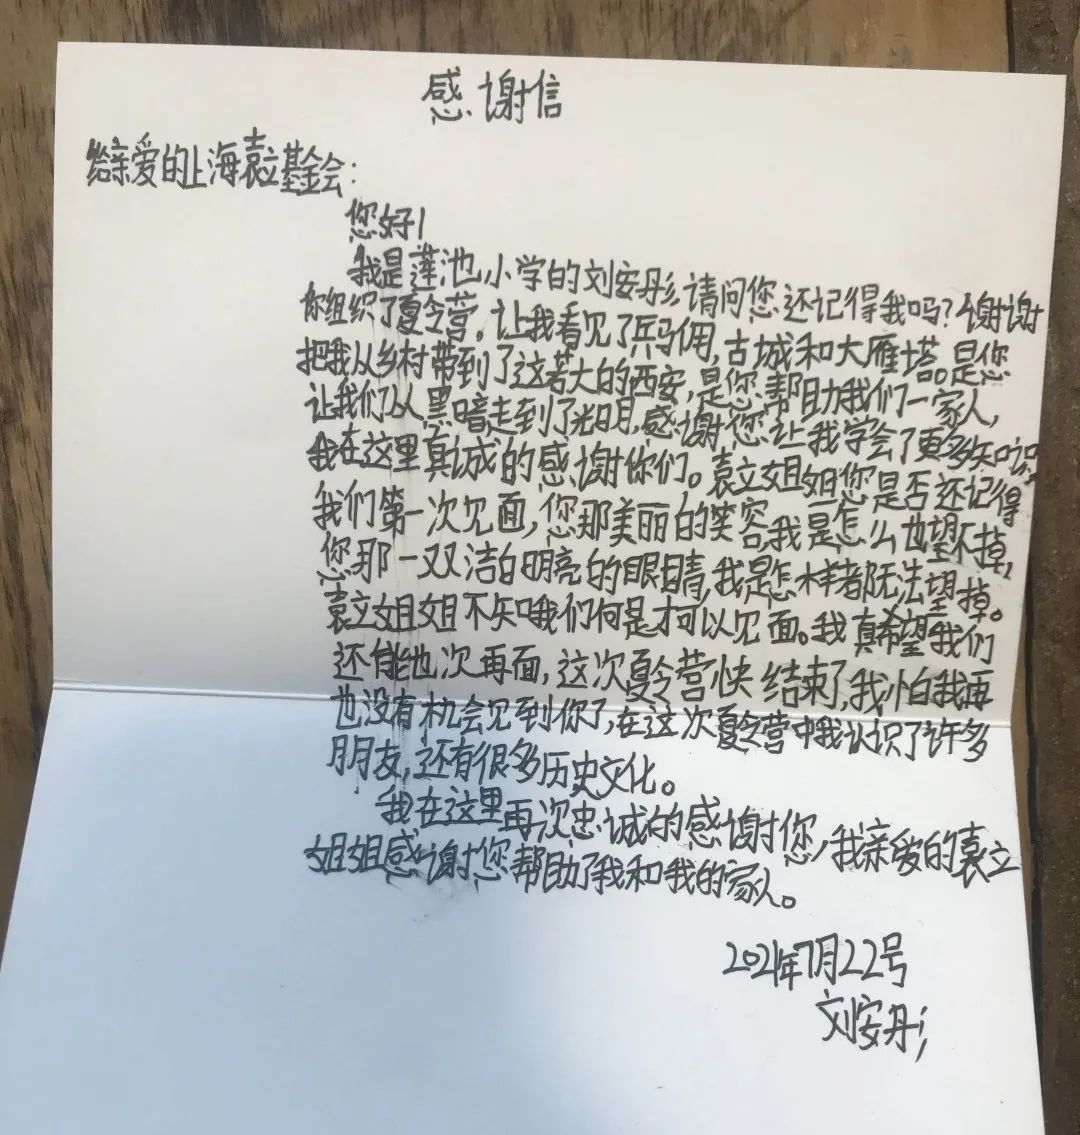 感谢信
给亲爱的上海袁立基金会：
您好！
我是莲池小学的刘安彤，请问您还记得我吗？谢谢
你组织了夏令营，让我看见了兵马俑，古城和大雁塔是您
把我从乡村带到了这若大的西安，是您帮助我们一家人，
让我们从黑暗走到了光明，感谢您让我学会了更多知识，
我在这里真诚的感谢你们。袁立姐姐您是否还记得
我们第一次见面，您那美丽的笑容，我是怎么也望不掉，
您那一双洁白明亮的眼睛，我是怎样都无法望掉。
袁立姐姐不知哦们何是才可以见面。我真希望我们
还能也次再面，这次夏令营快结束了，我怕我再
也没有机会见到你了，在这次夏令营中我认识了许多
朋友，还有很多历史文化。
我在这里再次忠诚的感谢您，我亲爱的袁立
姐姐感谢您帮助了我和我的家人。
2021年7月22号
刘安彤